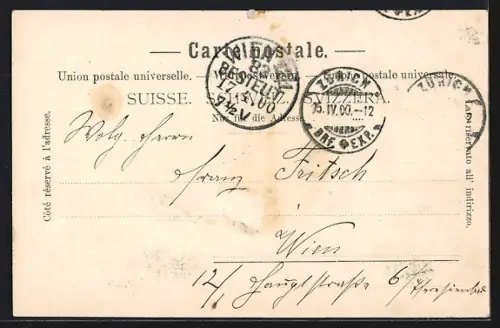 Carte postale.
Union postale universelle. — Weltpostverein. — Unione postale universale.
SUISSE. SCHWEIZ. SVIZZERA.
Nur für die Adresse.
Côté réservé à l'adresse.
Lato riservato all' indirizzo.
WIEN
BESTELLT
17.4.00
9½V
ZÜRICH
15.IV.00.–12
BRF. EXP.
ZÜRICH
Wolg. Herrn
Franz Fritsch
Wien
12/1 Hauptstraße 6